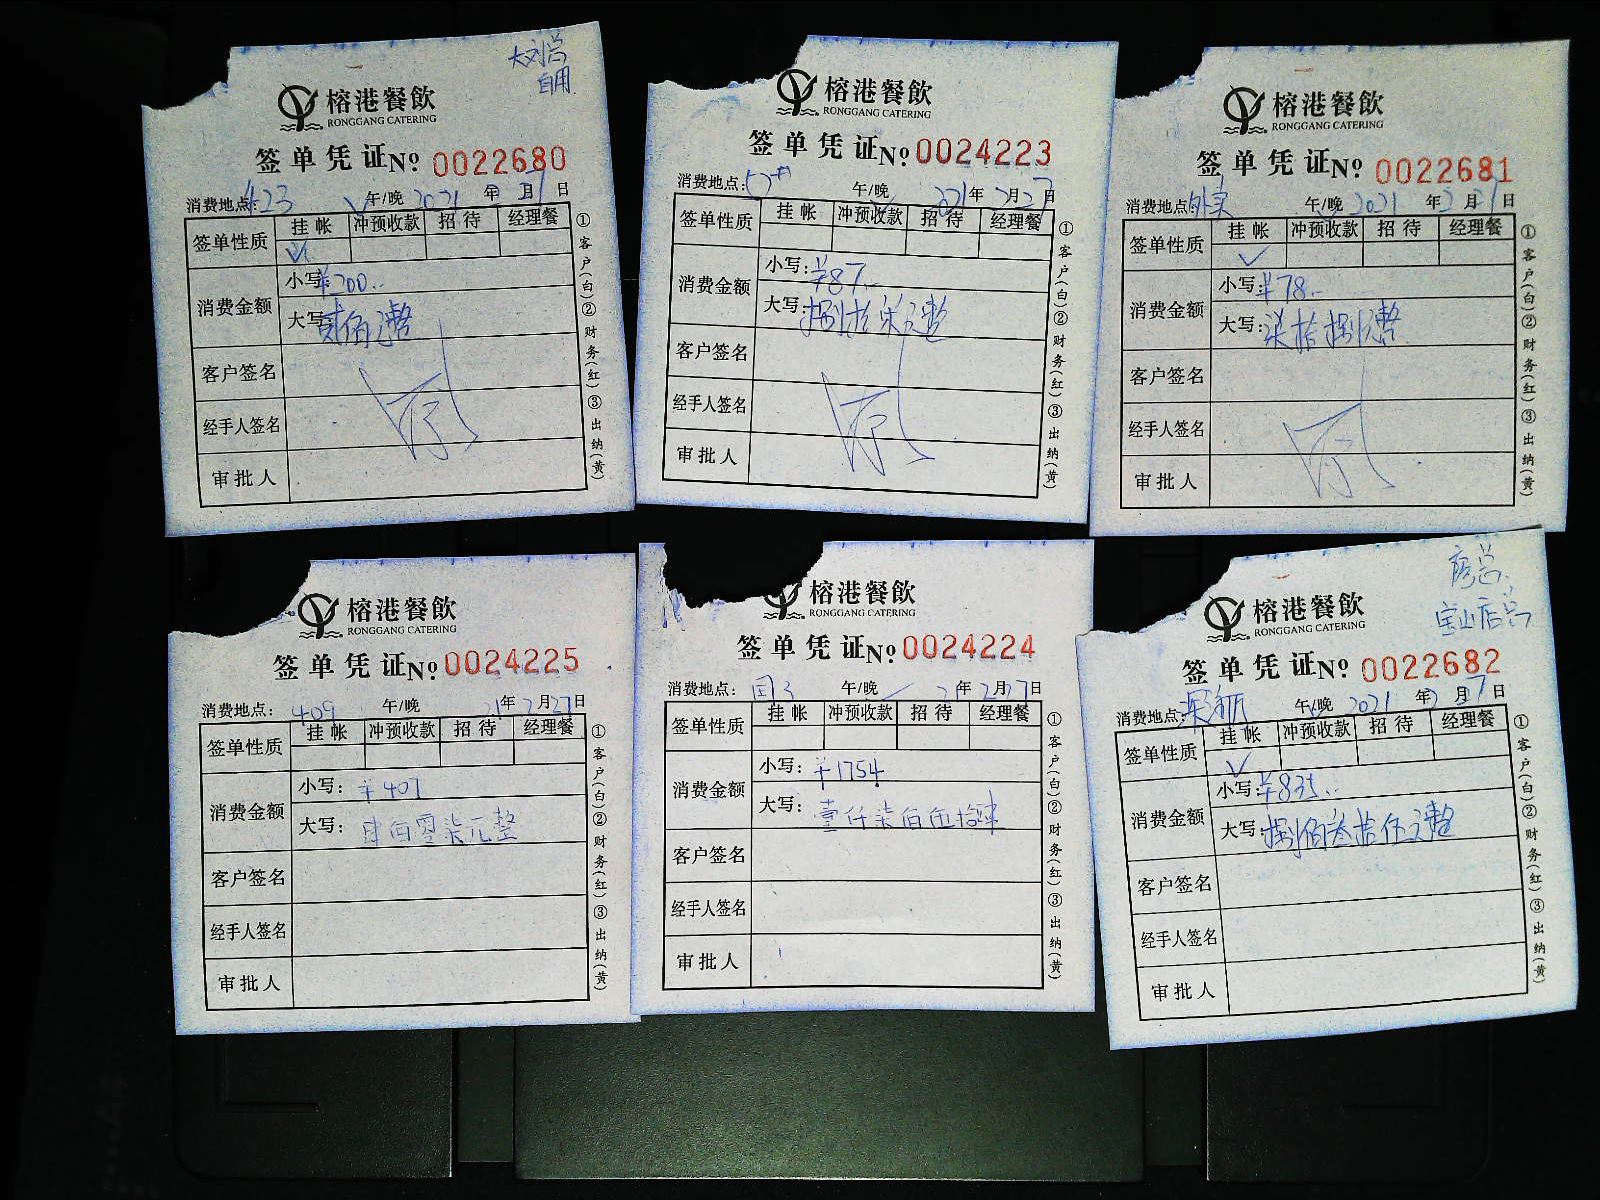 大刘总
自用
榕港餐飲
RONGGANG CATERING
签单凭证№ 0022680
消费地点: 423 午/晚 2021 年 月 日
签单性质 挂帐 冲预收款 招待 经理餐
✓
消费金额 小写: ¥200..
大写: 贰佰元整
客户签名
经手人签名
审批人
①客户(白)②财务(红)③出纳(黄)
榕港餐飲
RONGGANG CATERING
签单凭证№ 0024223
消费地点: 午/晚 2021 年 2 月 27 日
签单性质 挂帐 冲预收款 招待 经理餐
消费金额 小写: ¥87..
大写: 捌拾柒元整
客户签名
经手人签名
审批人
①客户(白)②财务(红)③出纳(黄)
榕港餐飲
RONGGANG CATERING
签单凭证№ 0022681
消费地点: 外卖 午/晚 2021 年 2 月 日
签单性质 挂帐 冲预收款 招待 经理餐
✓
消费金额 小写: ¥78..
大写: 柒拾捌元整
客户签名
经手人签名
审批人
①客户(白)②财务(红)③出纳(黄)
榕港餐飲
RONGGANG CATERING
签单凭证№ 0024225
消费地点: 409 午/晚 21 年 2 月 27 日
签单性质 挂帐 冲预收款 招待 经理餐
消费金额 小写: ¥407
大写: 肆佰零柒元整
客户签名
经手人签名
审批人
①客户(白)②财务(红)③出纳(黄)
榕港餐飲
RONGGANG CATERING
签单凭证№ 0024224
消费地点: 国3 午/晚 ✓ 21 年 2 月 27 日
签单性质 挂帐 冲预收款 招待 经理餐
消费金额 小写: ¥1754
大写: 壹仟柒佰伍拾肆
客户签名
经手人签名
审批人
①客户(白)②财务(红)③出纳(黄)
宝山店总
榕港餐飲
RONGGANG CATERING
签单凭证№ 0022682
消费地点: 午/晚 2021 年 2 月 7 日
签单性质 挂帐 冲预收款 招待 经理餐
✓
消费金额 小写: ¥835..
大写: 捌佰叁拾伍元整
客户签名
经手人签名
审批人
①客户(白)②财务(红)③出纳(黄)